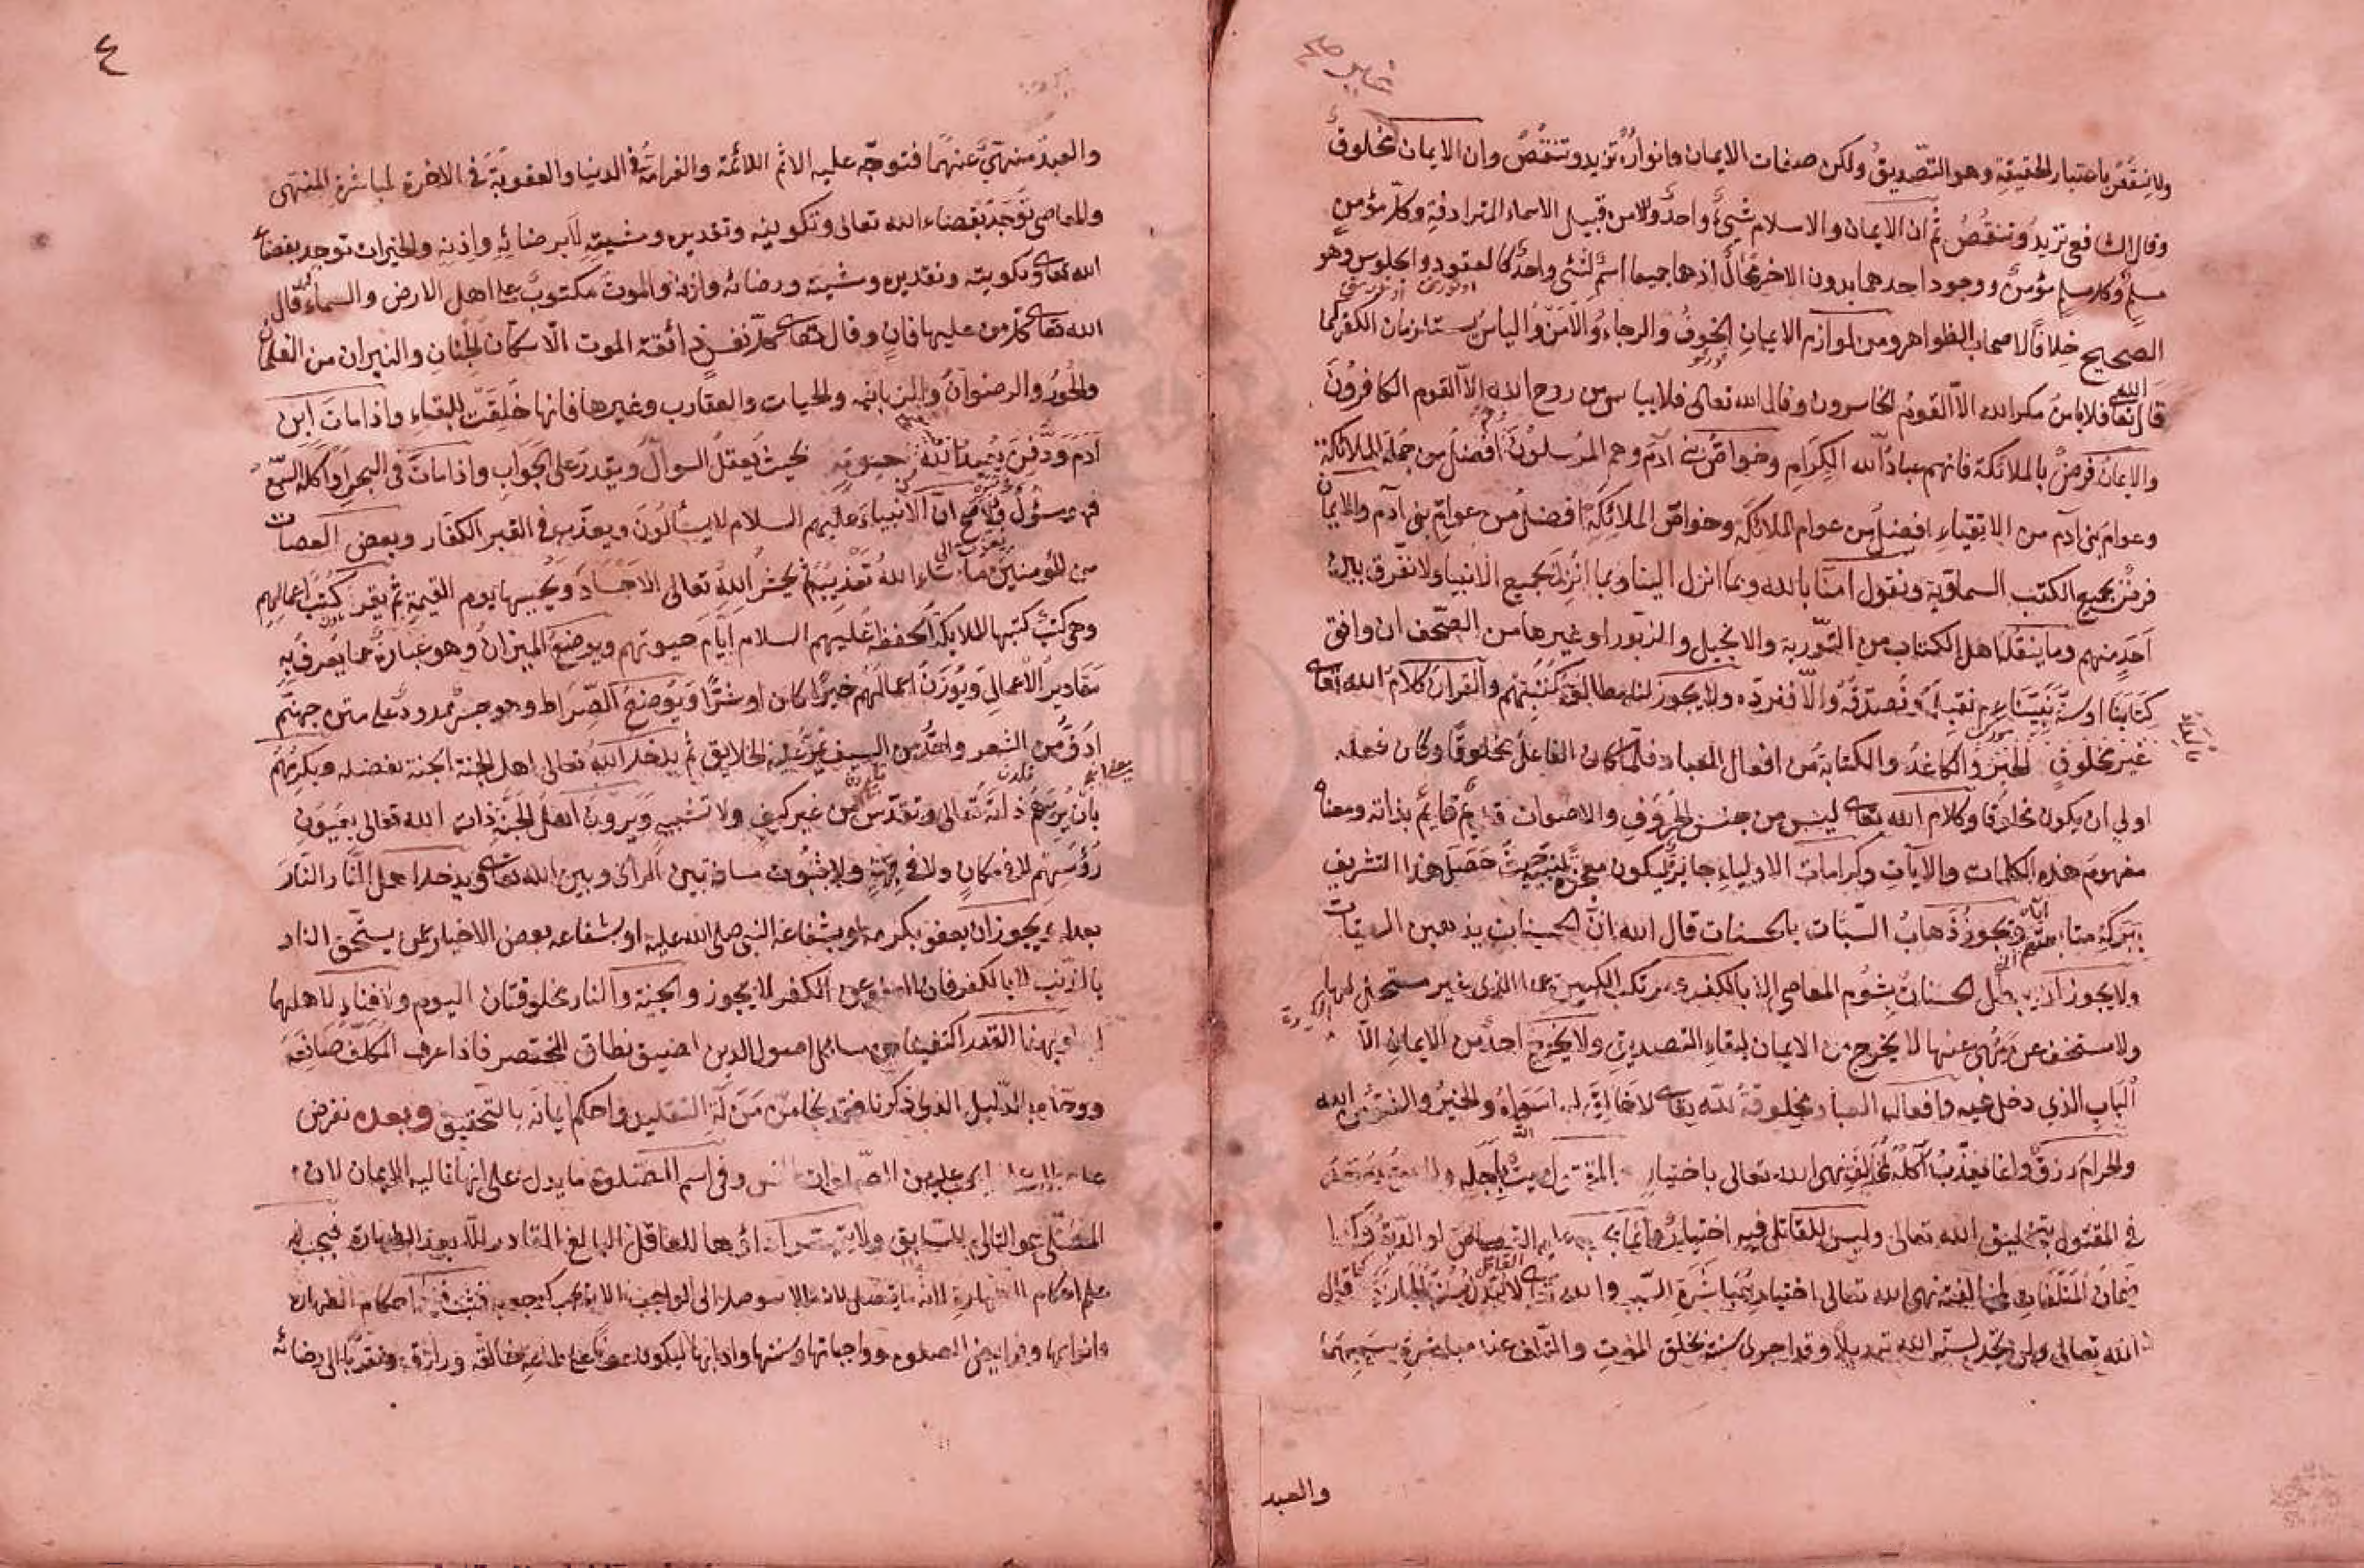 ولا ينتقص باعتبار الحقيقة وهو التصديق ولكن صفات الايمان وانواره تزيد وتنقص وان الايمان مخلوق
وقال الشافعي تزيد وتنقص ثم ان الايمان والاسلام شيء واحد ولأمن قبيل الاسماء المترادفة وكل مؤمن
مسلم وكل مسلم مؤمن ووجود احدهما بدون الاخر محال اذ هما جميعا اسم لشيء واحد كالعقود والجلوس وهو
الصحيح خلافا لاصحاب الظواهر ومن لوازم الايمان الخوف والرجاء والامن والياس يستلزمان الكفر كما
قال الله تعالى فلا يامن مكر الله الا القوم الخاسرون وقال الله تعالى فلا يياس من روح الله الا القوم الكافرون
والايمان فرض بالملائكة فانهم عباد الله الكرام وخواص بني آدم وهم المرسلون افضل من جملة الملائكة
وعوام بني آدم من الاتقياء افضل من عوام الملائكة وخواص الملائكة افضل من عوام بني آدم والايمان
فرض بجميع الكتب السماوية ونقول امنا بالله وبما انزل الينا وبما انزل بجميع الانبياء ولا نفرق بين
احد منهم وما ينقل اهل الكتاب من التورية والانجيل والزبور او غيرها من الصحف ان وافق
كتابنا او سنة نبينا نقبله ونصدقه والا فنرده ولا يجوز لنا مطالعة كتبهم والقرآن كلام الله تعالى
غير مخلوق الحبر والكاغد والكتابة من افعال العباد فلما كان الفاعل مخلوقا وكان فعله
اولى ان يكون مخلوقا وكلام الله تعالى ليس من جنس الحروف والاصوات قديم قايم بذاته ومعناه
مفهوم هذه الكلمات والآيات وكرامات الاولياء جايز ليكون معجزة لنبيه حيث حصل هذا التشريف
ببركة متابعته ويجوز ذهاب السيئات بالحسنات قال الله ان الحسنات يذهبن السيئات
ولا يجوز ان يبطل الحسنات بشوم المعاصي الا بالكفر مرتكب الكبيرة الذي غير مستحل لها
ولا مستخف عن نهى عنها لا يخرج من الايمان لبقاء التصديق ولا يخرج احد من الايمان الا
الباب الذي دخل فيه وافعال العباد مخلوقة لله تعالى لا خالق لها سواه والخير والشر من الله
والحرام رزق وانما يعذب آكله لمخالفة نهى الله تعالى باختياره المقتول ميت باجله
في المقتول بتخليق الله تعالى وليس للقاتل فيه اختيار وانما يجب عليه القصاص او الدية وكذا
ضمان المتلفات لمخالفته نهى الله تعالى اختياره بمباشرة السبب والله تعالى لا تبديل لسنته قال
الله تعالى ولن تجد لسنة الله تبديلا وقد اجرى سنته بخلق الموت والتلف عند مباشرة سببهما
والعبد
٤
والعبد منهي عنهما فتوجه عليه الاثم اللائمة والغرامة في الدنيا والعقوبة في الاخرة لمباشرة المنهى
والمعاصي توجد بقضاء الله تعالى وتكوينه وتقديره ومشيته لا برضائه واذنه والخيرات توجد بقضاء
الله تعالى وتكوينه وتقديره ومشيته ورضائه واذنه والموت مكتوب على اهل الارض والسماء قال
الله تعالى كل من عليها فان وقال تعالى كل نفس ذائقة الموت الا سكان الجنان والنيران من الغلمان
والحور والرضوان والزبانية والحيات والعقارب وغيرها فانها خلقت للبقاء واذا مات ابن
آدم ودفن يعيد الله حيوته بحيث يعقل السوال ويقدر على الجواب واذا مات في البحر او اكله السبع
فهو مسؤل والاصح ان الانبياء عليهم السلام لا يسألون ويعذب في القبر الكفار وبعض العصات
من المؤمنين ما شاء الله تعذيبهم ثم يحشر الله تعالى الاجساد ويحييها يوم القيمة ثم يقرء كتب اعمالهم
وهي كتب كتبها الملائكة الحفظة عليهم السلام ايام حيوتهم ويوضع الميزان وهو عبارة عما يعرف به
مقادير الاعمال ويوزن اعمالهم خيرا كان او شرا ويوضع الصراط وهو جسر ممدود على متن جهنم
ادق من الشعر واحد من السيف يمر عليه الخلايق ثم يدخل الله تعالى اهل الجنة الجنة بفضله ويكرمهم
بان يريهم ذاته تعالى وتقدس من غير كيف ولا تشبيه ويرون اهل الجنة ذات الله تعالى بعيون
رؤسهم لا في مكان ولا في جهة ولا ثبوت مسافة بين الرائي وبين الله تعالى ويدخل اهل النار النار
بعدله ويجوز ان يعفو بكرمه او بشفاعة النبي صلى الله عليه او بشفاعة بعض الاخيار عمن يستحق النار
بالذنب لا بالكفر فان العفو عن الكفر لا يجوز والجنة والنار مخلوقتان اليوم ولا فناء لاهلهما
وبهذا القدر اكتفينا من مسايل اصول الدين لضيق نطاق المختصر فاذا عرف المكلف صانعه
ووحده بالدليل الذي ذكرنا فقد نجا من مذلة التقليد واحكم ايمانه بالتحقيق وبعده نفرض
عليه الصلوات الخمس وفي اسم الصلوة ما يدل على انها تاليه الايمان لان
المصلي هو التالي للسابق ولا يتيسر اداؤها للعاقل البالغ القادر الا بعد الطهارة فيجب
علم احكام الطهارة لان ما يتوصل الى الواجب الا به يجب كوجوبه احكام الطهارة
وانواعها وفرائض الصلوة وواجباتها وسننها وادابها ليكون طاعة خالقه ورازقه وتقربا الى رضائه